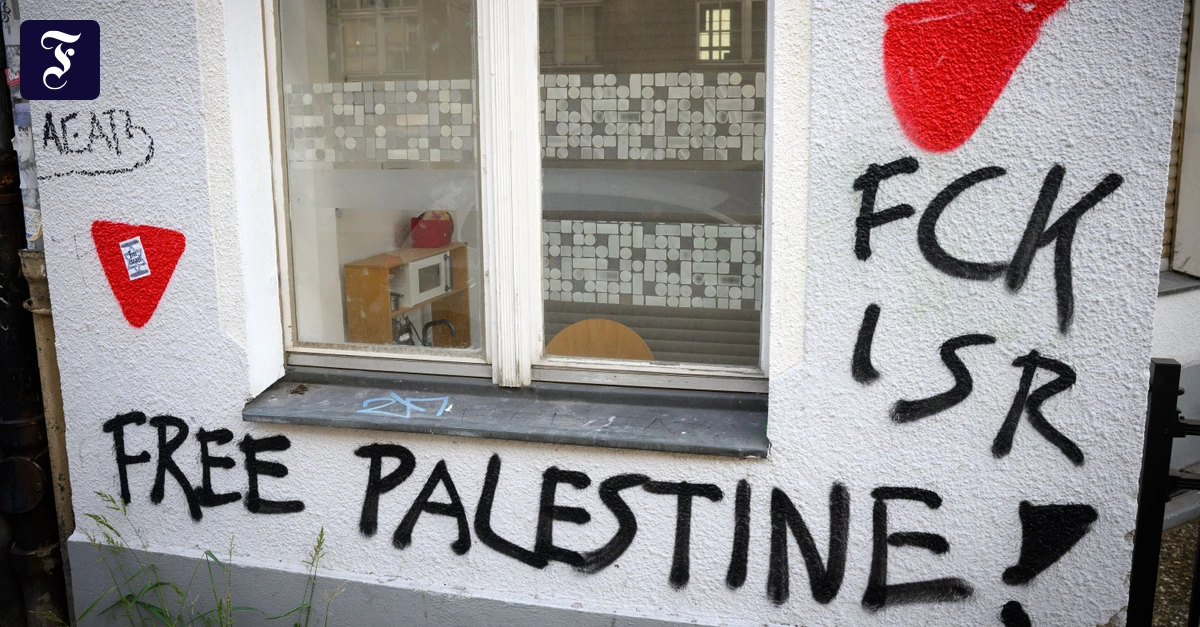 F
FCK
ISR
FREE PALESTINE!